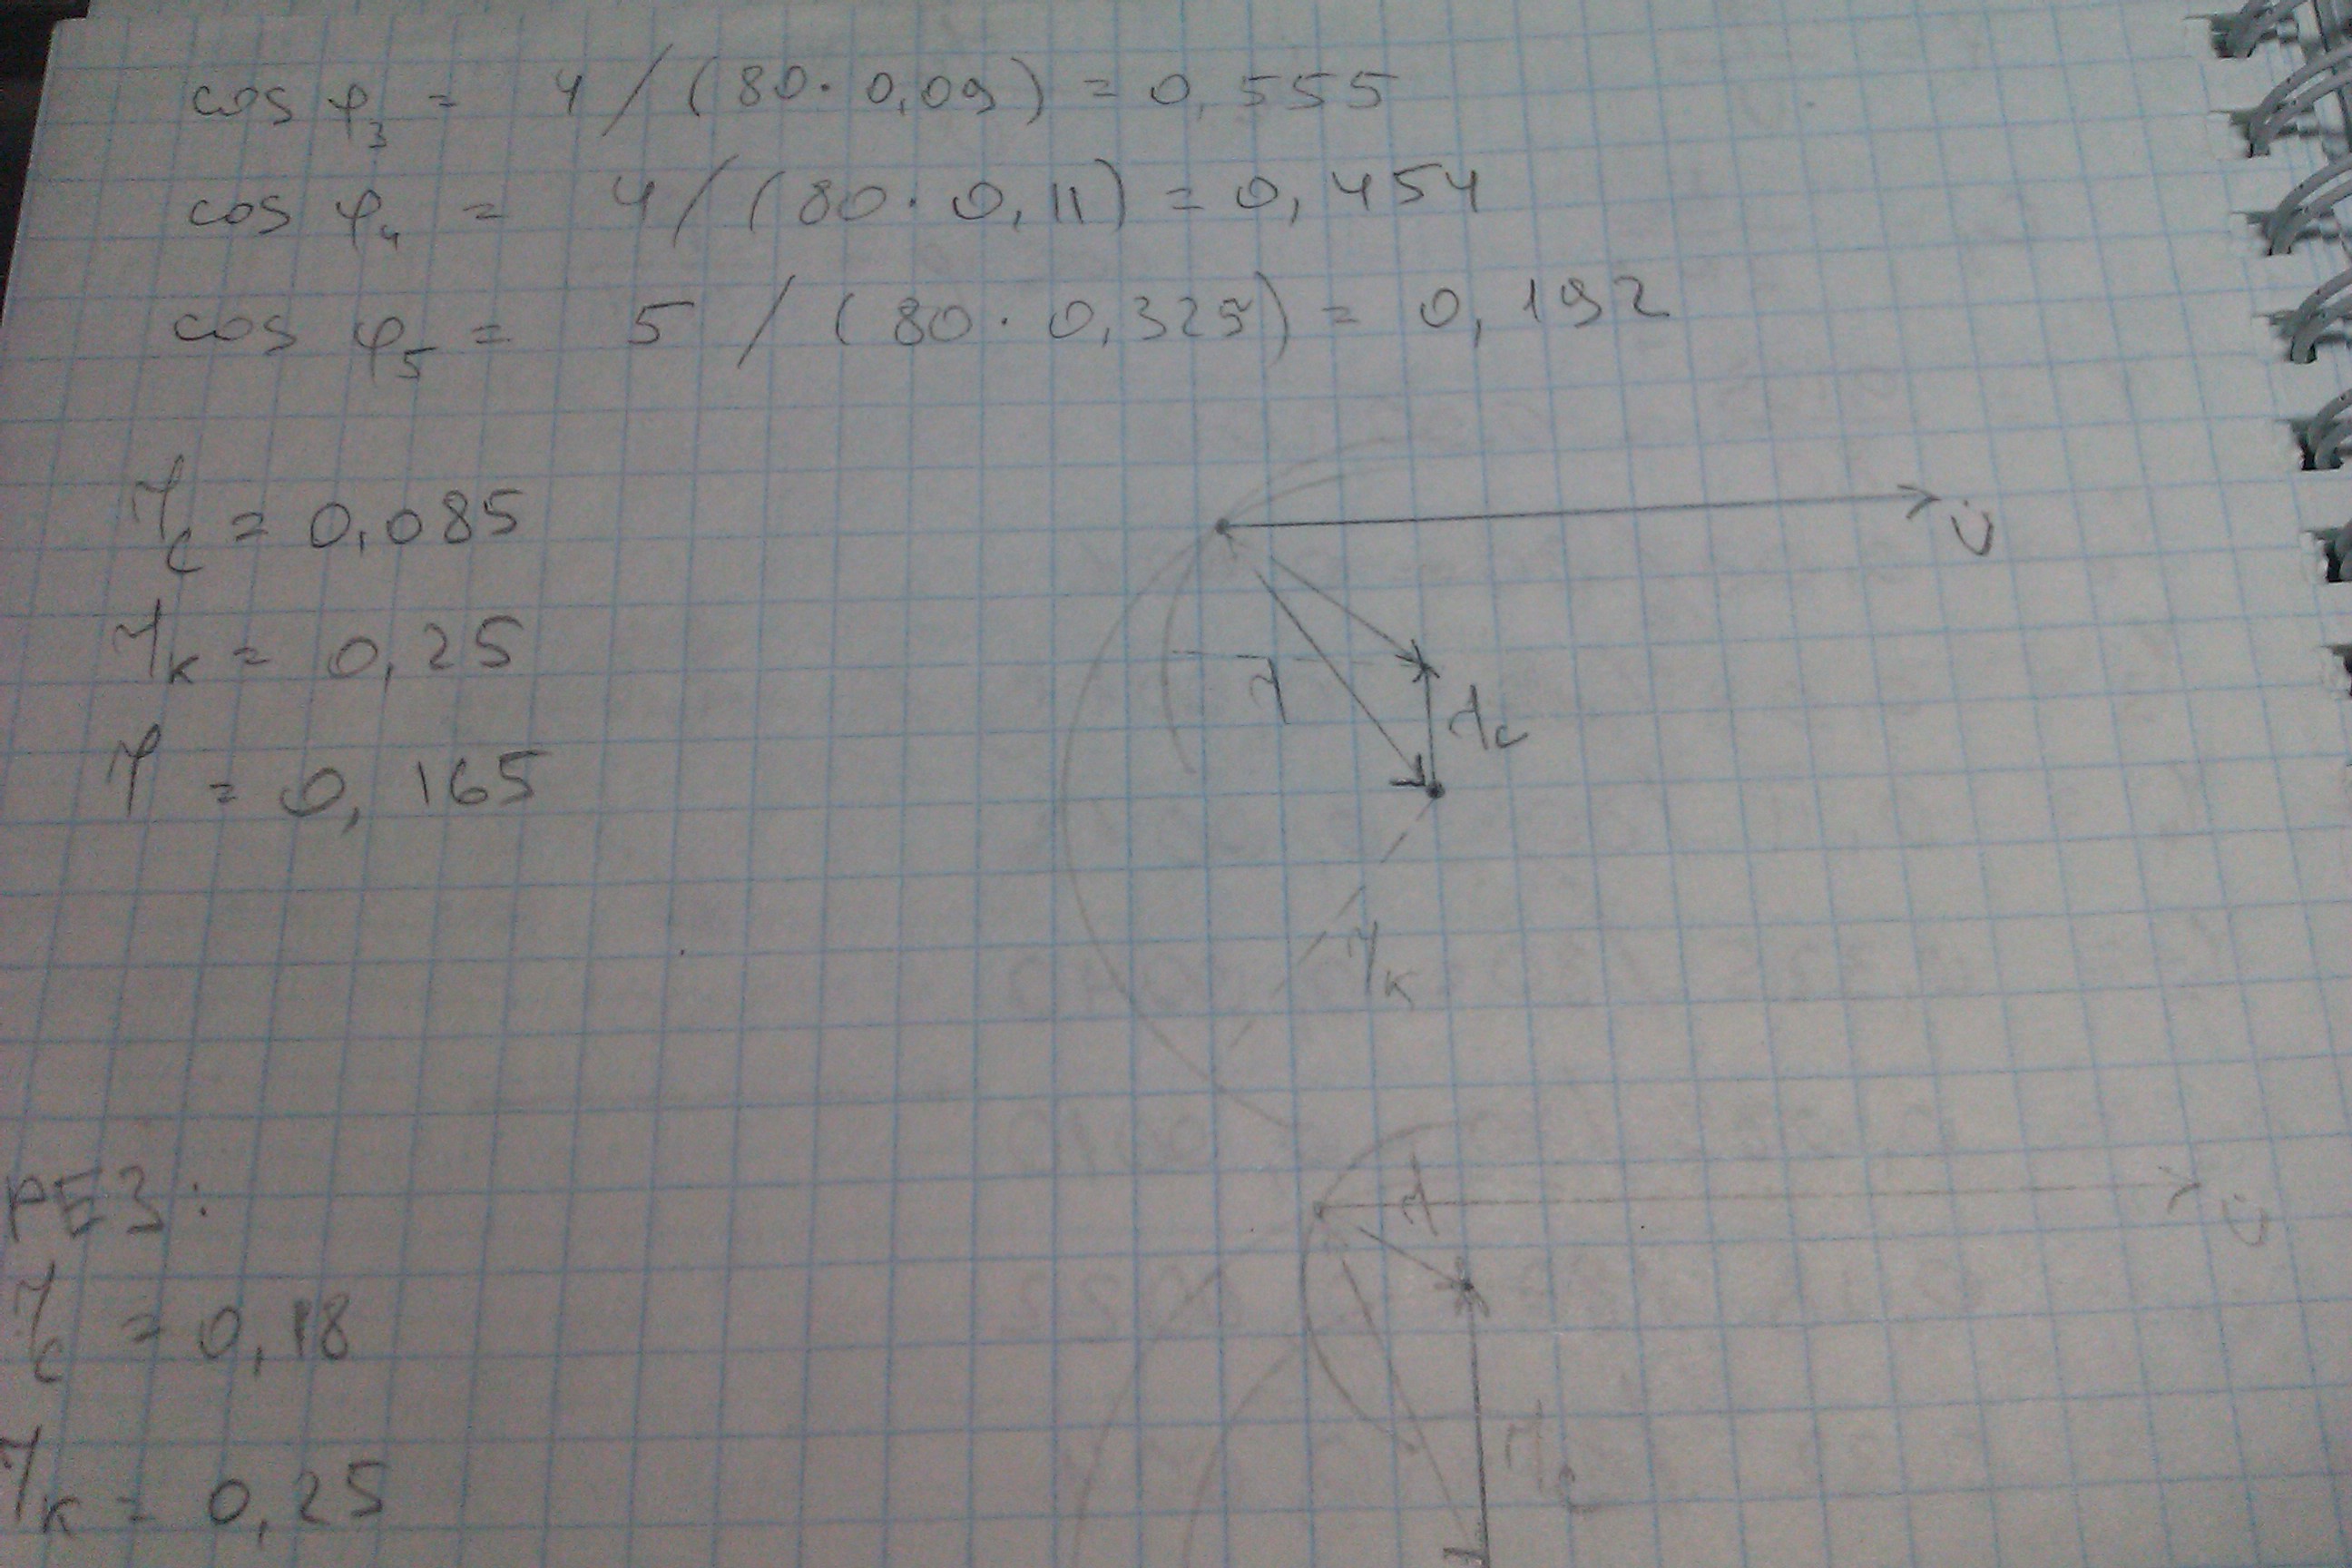 cos φ₃ = 4 / (80 · 0,09) = 0,555
cos φ₄ = 4 / (80 · 0,11) = 0,454
cos φ₅ = 5 / (80 · 0,325) = 0,192
U̇
I_c = 0,085
I_к = 0,25
I = 0,165
I
I_c
I_к
РЕЗ:
I
U̇
I_c = 0,18
I_c
I_к = 0,25